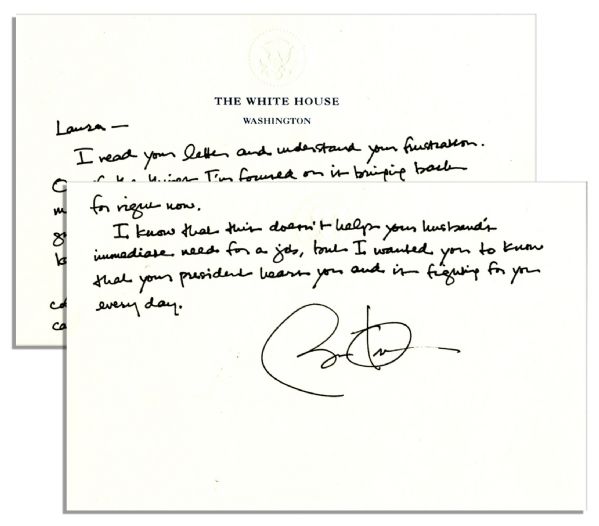 THE WHITE HOUSE
WASHINGTON
Laura —
I read your letter and understand your frustration.
I'm focused on is bringing back
for right now.
I know that this doesn't help your husband's
immediate need for a job, but I wanted you to know
that your president hears you and is fighting for you
every day.